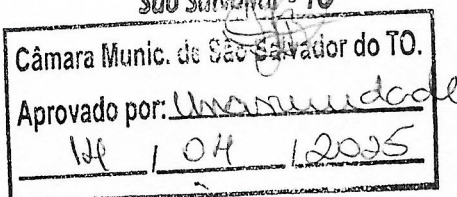 São Salvador - TO
Câmara Munic. de São Salvador do TO.
Aprovado por: Unanimidade
14 / 04 / 2025